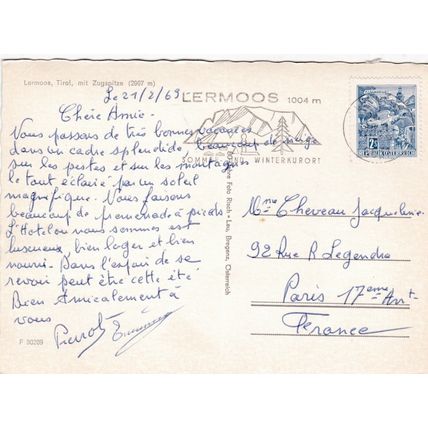 Lermoos, Tirol, mit Zugspitze (2967 m)
Le 21/2/69
Chère Amie.
Vous passons de très bonnes vacances
dans un cadre splendide, beaucoup de neige
sur les pistes et sur les montagnes
le tout éclairé par un soleil
magnifique. Nous faisons
beaucoup de promenade à pieds
L'Hotel ou nous sommes est
luxueux, bien loger et bien
nourri. Dans l'espoir de se
revoir peut être cette été.
Bien Amicalement à
vous
Pierrot
P 30209
Foto Risch-Lau, Bregenz, Österreich
LERMOOS 1004 m
SOMMER- UND WINTERKURORT
REPUBLIK ÖSTERREICH
Mme Cheveau Jacqueline.
92 Rue R Legendre
Paris 17ème Arrt
France